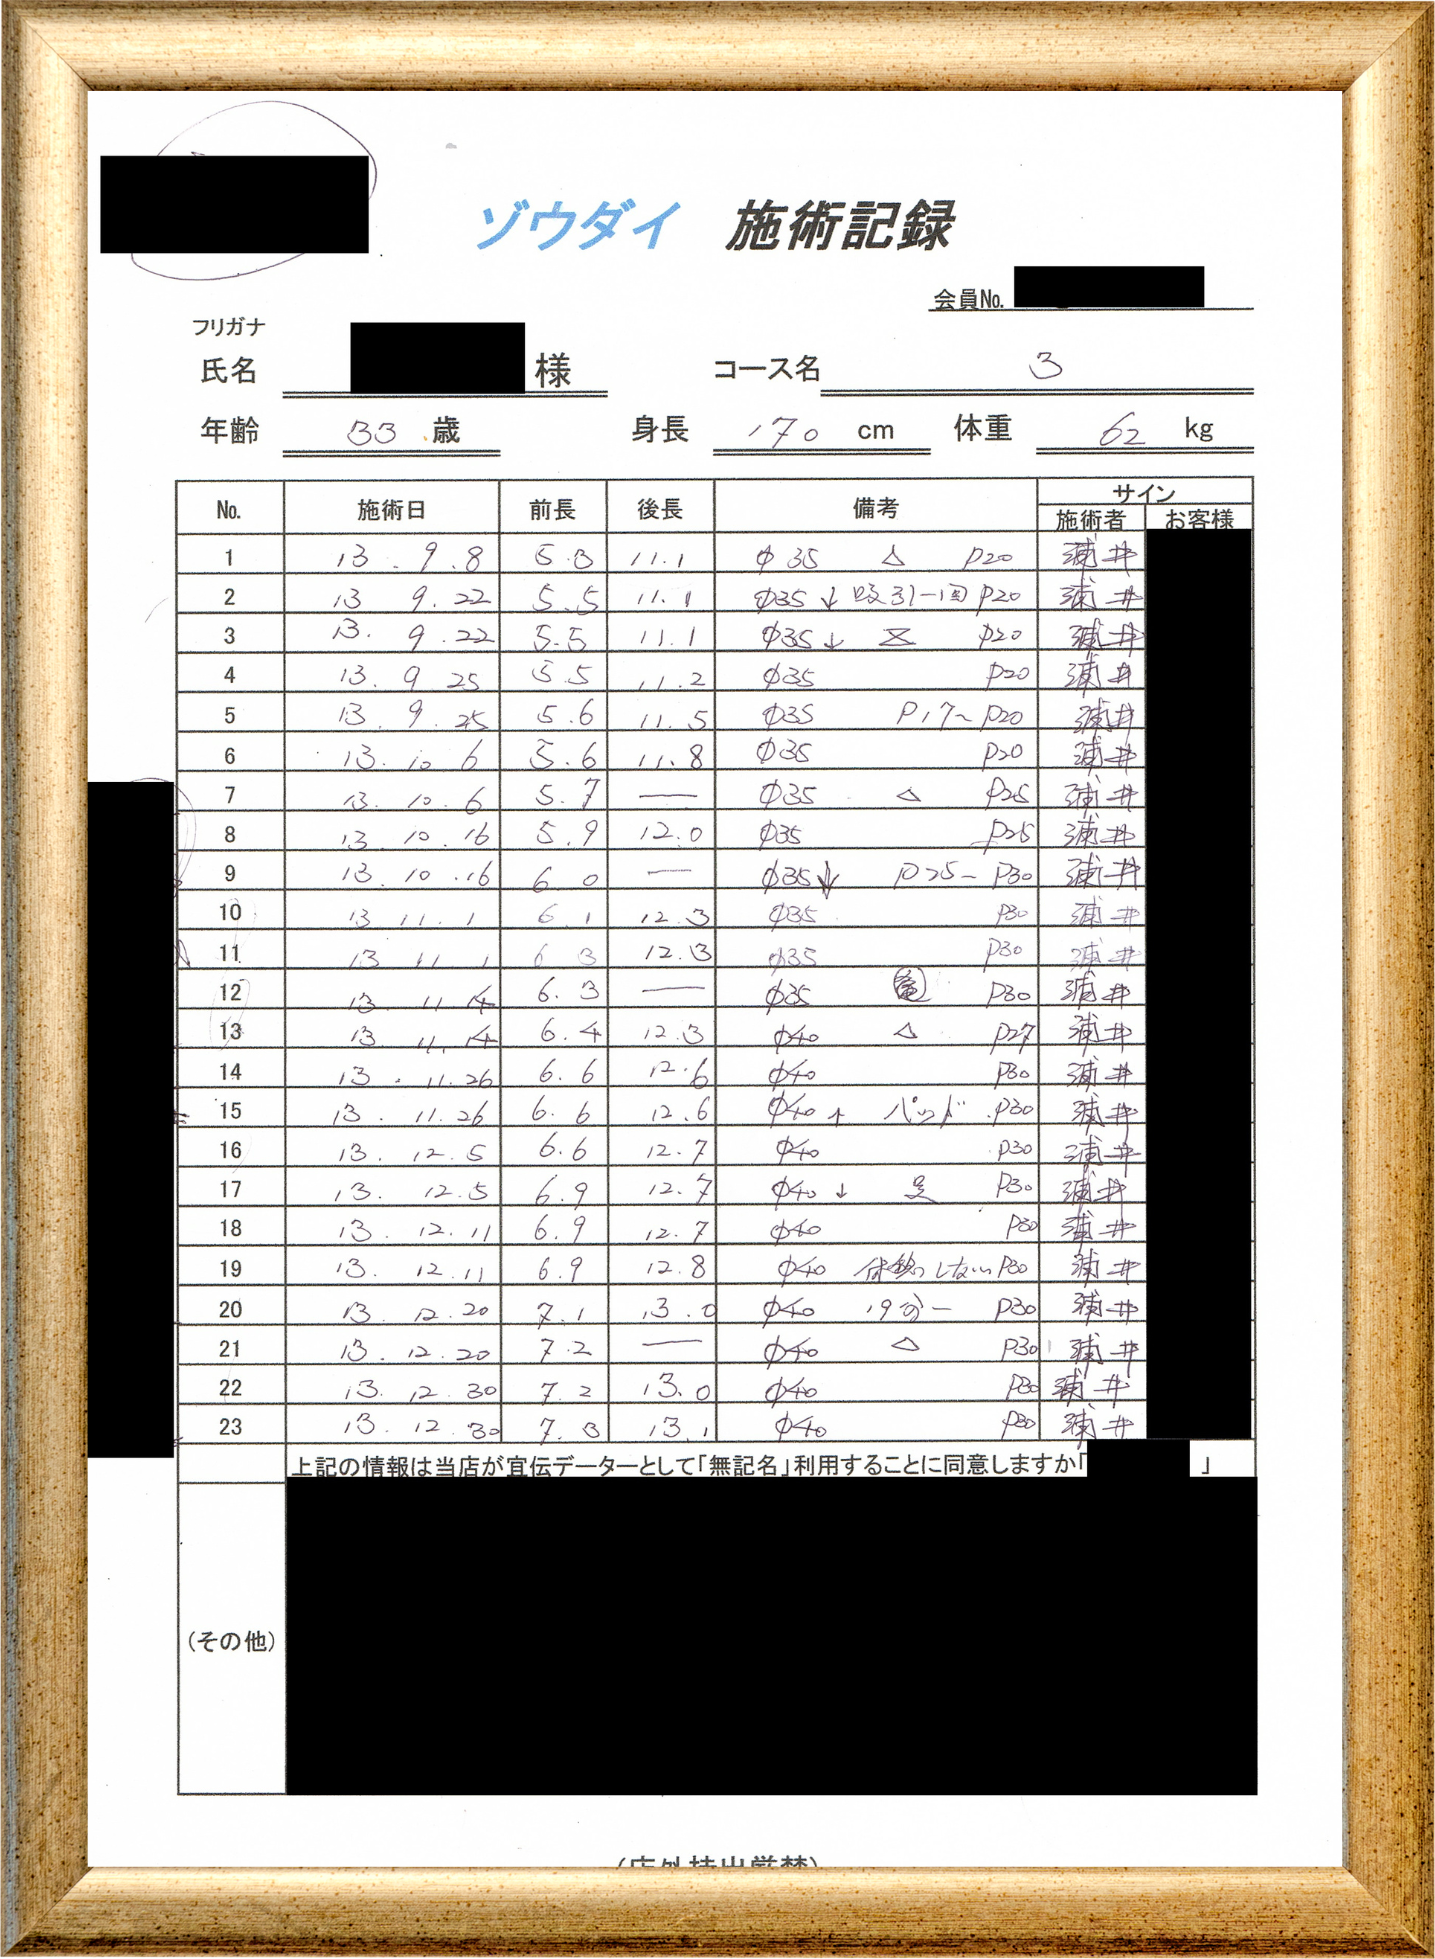 ゾウダイ 施術記録
会員No.
フリガナ
氏名 様 コース名 3
年齢 33 歳 身長 170 cm 体重 62 kg
No. 施術日 前長 後長 備考 サイン
施術者 お客様
1 13.9.8 5.3 11.1 φ35 △ P20 浦井
2 13 9.22 5.5 11.1 φ35↓ 吸引一回 P20 浦井
3 13.9.22 5.5 11.1 φ35↓ P20 浦井
4 13.9 25 5.5 11.2 φ35 P20 浦井
5 13.9.25 5.6 11.5 φ35 P17~P20 浦井
6 13.10 6 5.6 11.8 φ35 P20 浦井
7 13.10.6 5.7 — φ35 △ P25 浦井
8 13.10.16 5.9 12.0 φ35 P25 浦井
9 13.10.16 6 0 — φ35↓ P25~P30 浦井
10 13 11.1 6.1 12.3 φ35 P30 浦井
11 13 11 1 6 3 12.3 φ35 P30 浦井
12 13 11.14 6.3 — φ35 P30 浦井
13 13 11.14 6.4 12.3 φ40 △ P27 浦井
14 13.11.26 6.6 12.6 φ40 P30 浦井
15 13.11.26 6.6 12.6 φ40↑ パッド P30 浦井
16 13.12.5 6.6 12.7 φ40 P30 浦井
17 13.12.5 6.9 12.7 φ40↓ P30 浦井
18 13.12.11 6.9 12.7 φ40 P30 浦井
19 13.12.11 6.9 12.8 φ40 しない P30 浦井
20 13.12.20 7.1 13.0 φ40 19分~ P30 浦井
21 13.12.20 7.2 — φ40 △ P30 浦井
22 13.12.30 7.2 13.0 φ40 P30 浦井
23 13.12.30 7.3 13.1 φ40 P30 浦井
上記の情報は当店が宣伝データーとして「無記名」利用することに同意しますか「 」
(その他)
(店外持出厳禁)